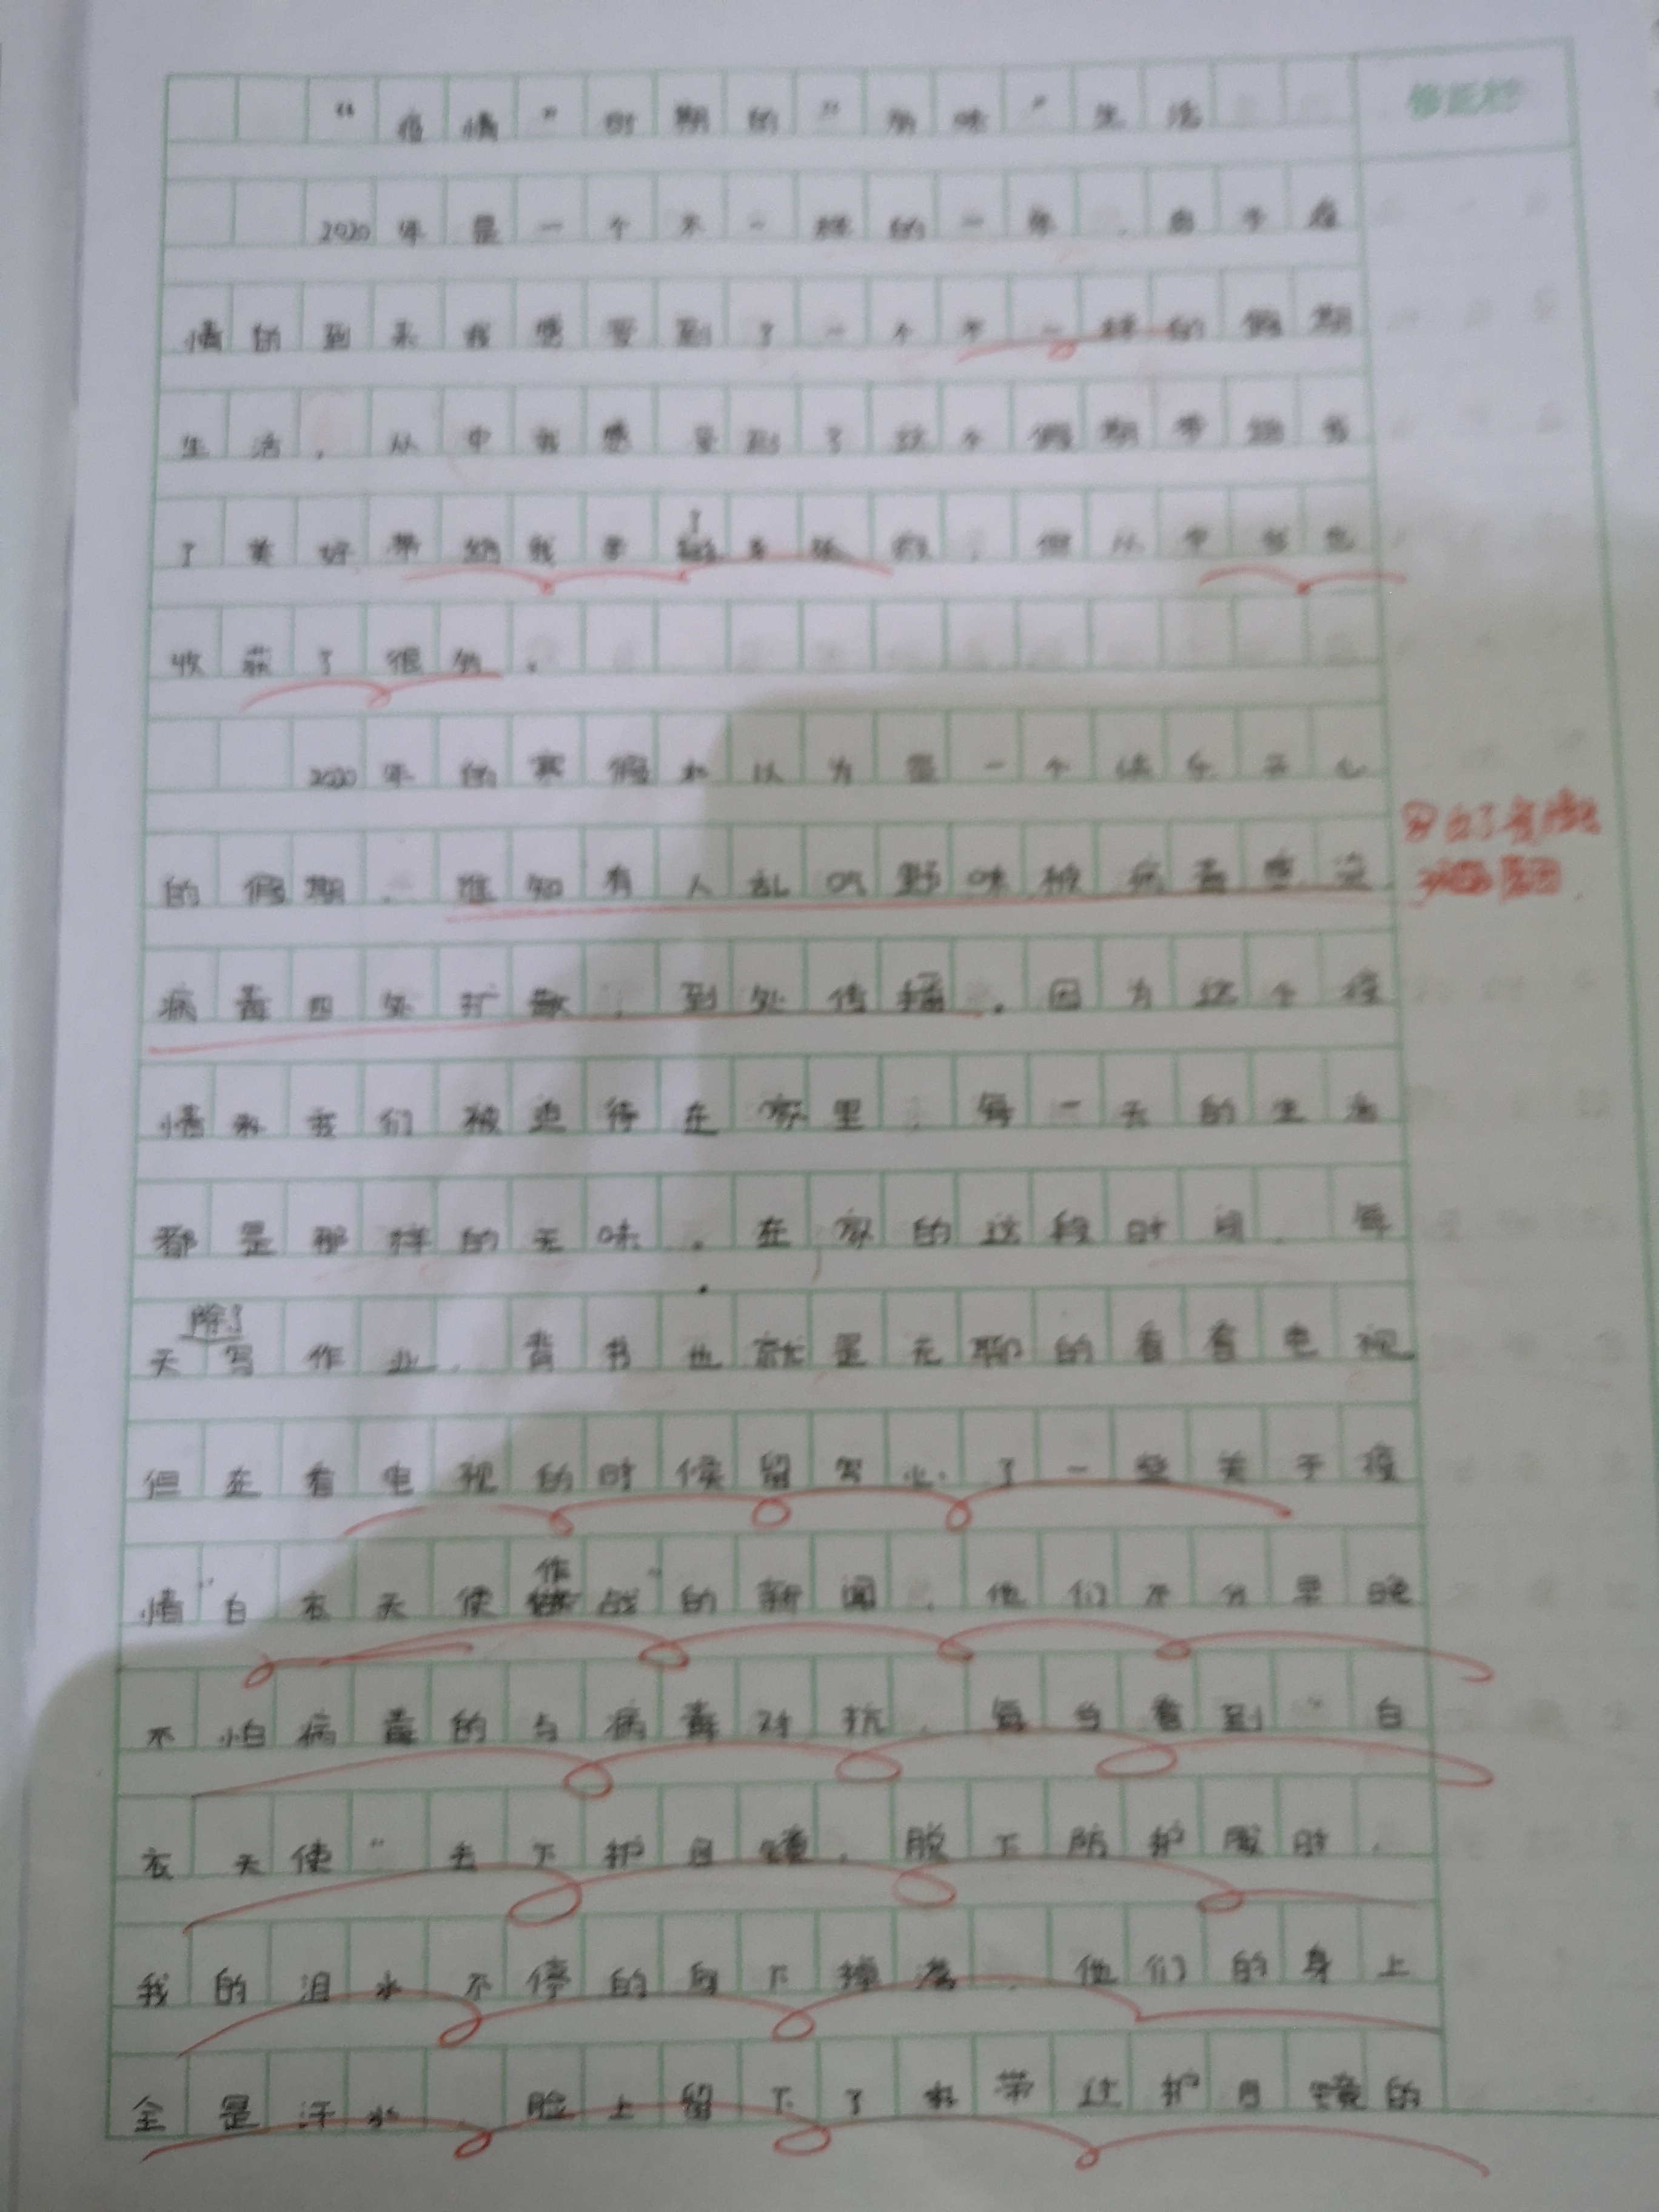 “疫情”时期的“趣味”生活
修正栏
2020年是一个不一样的一年,由于疫
情的到来我感受到了一个不一样的假期
生活,从中我感受到了这个假期带给我
了美好带给我,但从中我也
收获了很多。
2020年的寒假本以为是一个快乐开心
的假期,谁知有人乱吃野味被病毒感染
病毒四处扩散,到处传播。因为这个疫
情我们被迫待在家里,每一天的生活
都是那样的无味。在家的这段时间,每
天除了写作业,背书也就是无聊的看看电视
但在看电视的时候留意了一些关于疫
情“白衣天使作战”的新闻,他们不分早晚
不怕病毒的与病毒对抗,每当看到“白
衣天使”去下护目镜,脱下防护服时,
我的泪水不停的向下掉落,他们的身上
全是汗水,脸上留下了带过护目镜的